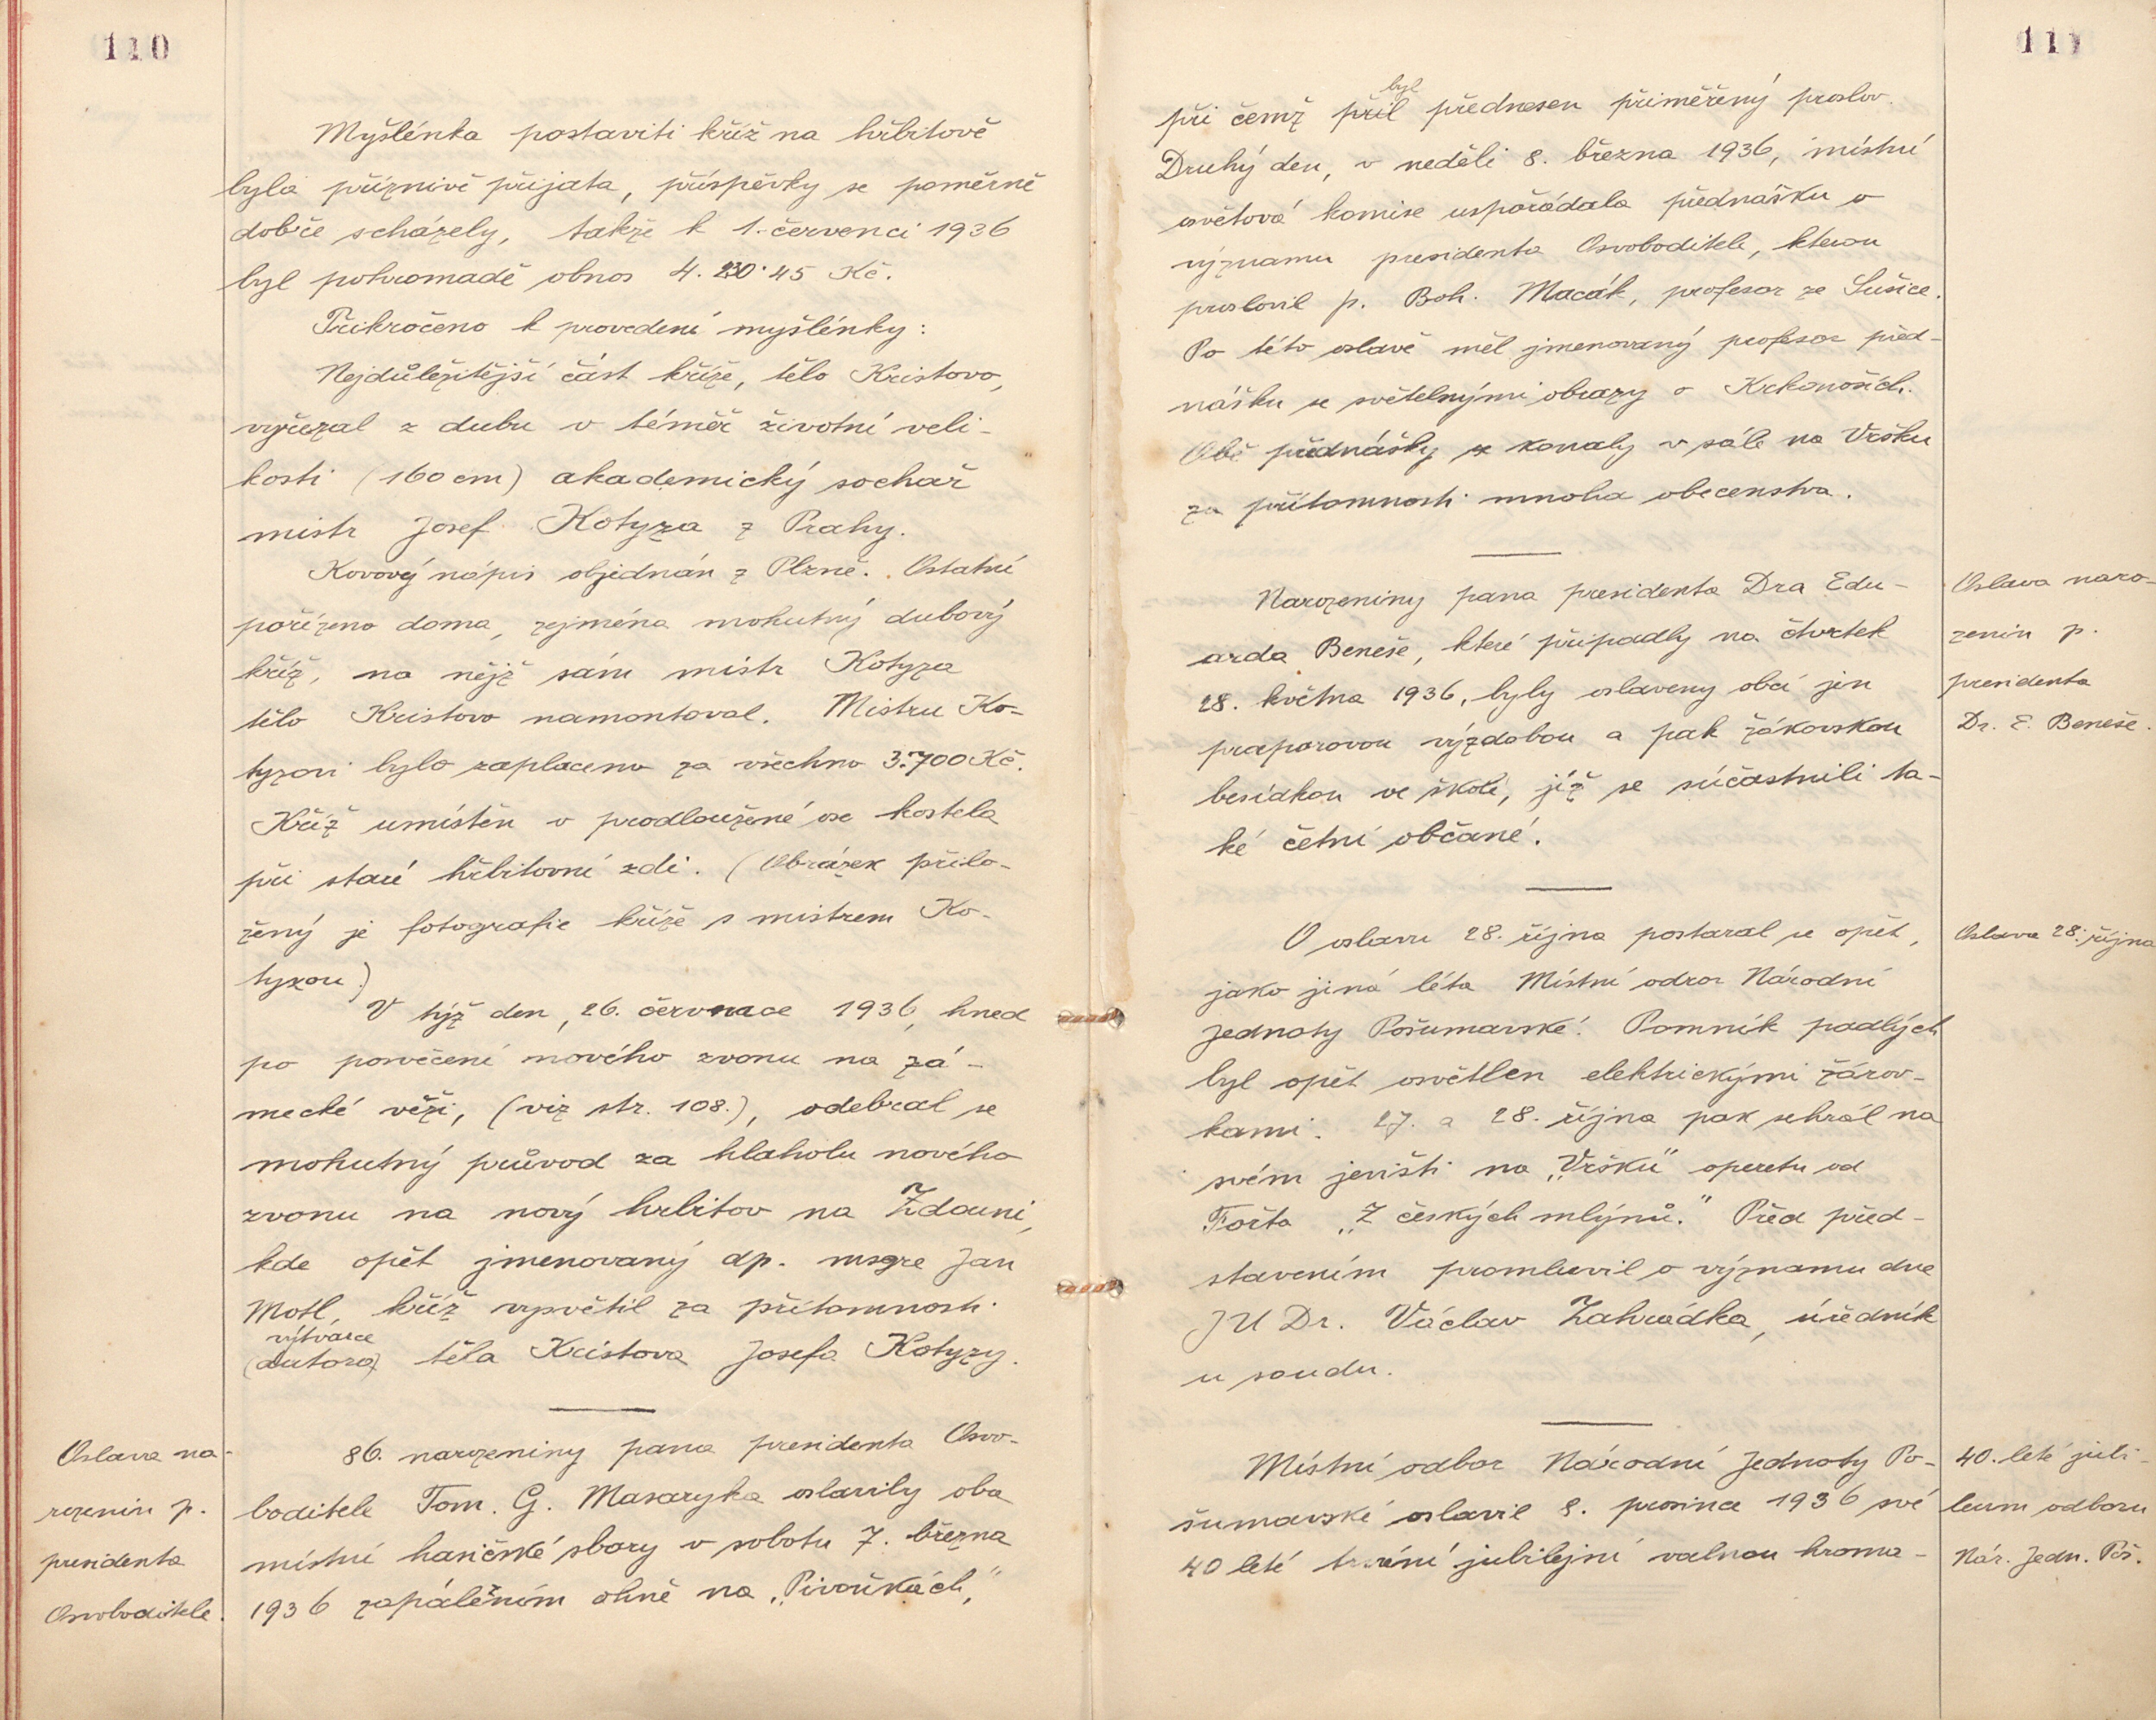 110
Myšlénka postaviti kříž na hřbitově
byla příznivě přijata, příspěvky se poměrně
dobře scházely, takže k 1. červenci 1936
byl pohromadě obnos 4.230·45 Kč.
Přikročeno k provedení myšlénky:
Nejdůležitější část kříže, tělo Kristovo,
vyřezal z dubu v téměř životní veli-
kosti (160 cm) akademický sochař
mistr Josef Kotyza z Prahy.
Kovový nápis objednán z Plzně. Ostatní
pořízeno doma, zejména mohutný dubový
kříž, na nějž sám mistr Kotyza
tělo Kristovo namontoval. Mistru Ko-
tyzovi bylo zaplaceno za všechno 3.700 Kč.
Kříž umístěn v prodloužené ose kostela
při staré hřbitovní zdi. (Obrázek přilo-
žený je fotografie kříže s mistrem Ko-
tyzou.)
V týž den, 26. července 1936, hned
po posvěcení nového zvonu na zá-
mecké věži, (viz str. 108.), odebral se
mohutný průvod za hlaholu nového
zvonu na nový hřbitov na Zdouni,
kde opět jmenovaný dp. msgre Jan
Motl, kříž vysvětil za přítomnosti
výtvarce
(autora) těla Kristova Josefa Kotyzy.
Oslava na-
rozenin p.
presidenta
Osvoboditele.
86. narozeniny pana presidenta Osvo-
boditele Tom. G. Masaryka oslavily oba
místní hasičské sbory v sobotu 7. března
1936 zapálením ohně na „Pivoňkách,"
111
byl
při čemž přil přednesen přiměřený proslov.
Druhý den, v neděli 8. března 1936, místní
osvětová komise uspořádala přednášku o
významu presidenta Osvoboditele, kterou
proslovil p. Boh. Macák, profesor ze Sušice.
Po této oslavě měl jmenovaný profesor před-
nášku se světelnými obrazy o Krkonoších.
Obě přednášky se konaly v sále na Vršku
za přítomnosti mnoha obecenstva.
Oslava naro-
zenin p.
presidenta
Dr. E. Beneše.
Narozeniny pana presidenta Dra Edu-
arda Beneše, které připadly na čtvrtek
28. května 1936, byly oslaveny obcí jen
praporovou výzdobou a pak žákovskou
besídkou ve škole, jíž se súčastnili ta-
ké četní občané.
Oslava 28. října
O oslavu 28. října postaral se opět,
jako jiná léta Místní odbor Národní
Jednoty Pošumavské. Pomník padlých
byl opět osvětlen elektrickými žárov-
kami. 27. a 28. října pak sehrál na
svém jevišti na „Vršku" operetu od
Fořta „Z českých mlýnů." Před před-
stavením promluvil o významu dne
JUDr. Václav Zahrádka, úředník
u soudu.
40. leté jubi-
leum odboru
Nár. Jedn. Poš.
Místní odbor Národní Jednoty Po-
šumavské oslavil 8. prosince 1936 své
40 leté trvání jubilejní valnou hroma-